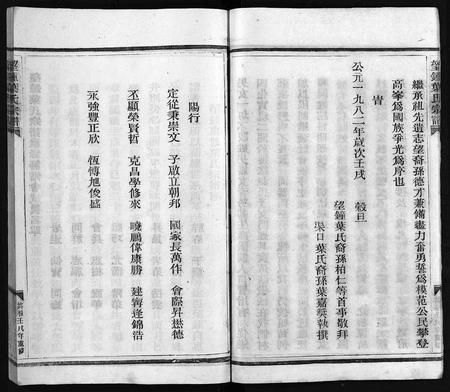 繼承祖先遺志望裔孫德才兼備盡力奮勇誓爲模范公民攀登
高峯爲國族爭光爲序也
旹
公元一九八二年歲次壬戌 穀旦
望鐘葉氏裔孫柏仁等首事敬拜
渠口葉氏裔孫葉嘉燊執撰
陽行
定從秉崇文 子啟立朝邦 國家長萬作 會際昇懋德
丕顯榮賢哲 克昌學修來 曉鵬偉康勝 建壽逢錦浩
永強豐正欣 恆博旭俊盛
望鐘葉氏宗譜
望鐘葉氏宗譜